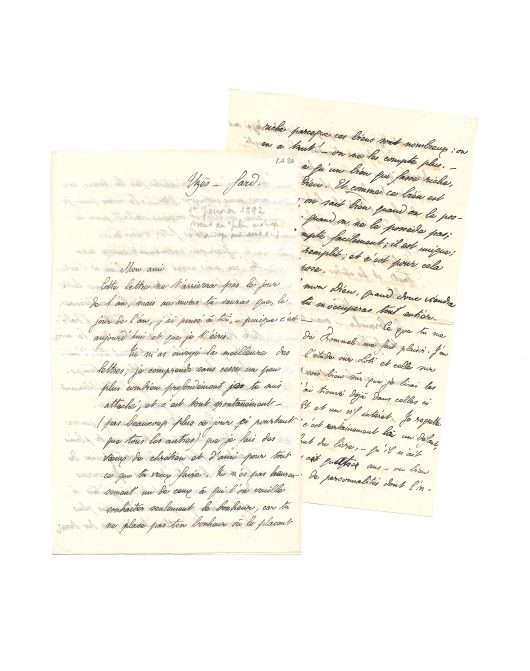 Uzès – Gard.
1er janvier 1892
Mon ami
Cette lettre ne t'arrivera pas le jour
de l'an, mais au moins tu sauras que, le
jour de l'an, j'ai pensé à toi, – puisque c'est
aujourd'hui et que je t'écris.
Tu m'as envoyé la meilleure des
lettres; je comprends sans cesse un peu
plus combien profondément je te suis
attaché; et c'est tout spontanément –
(pas beaucoup plus ce jour ci pourtant
que tous les autres) que je fais des
vœux de chrétien et d'ami pour tout
ce que tu veux faire. Tu n'es pas heureu-
sement un de ceux à qui l'on veuille
souhaiter seulement le bonheur, car tu
ne places pas ton bonheur où le placent
riche parceque ces biens sont nombreux : on
en a tant! – on ne les compte plus. –
ai-je un bien qui fasse riche,
Dieu. Et comme ce bien est
on sait bien quand on le pos-
quand on ne le possède pas;
compte facilement; il est unique;
remplit; et c'est pour cela
mon Dieu, quand donc
tu m'occuperas tout entier.
Ce que tu me
de me fait plaisir. J'ai
l'étude sur Loti et celle sur
bien sûr que je lirai les
ai trouvé déjà dans celles ci
et un vif intérêt. Je regrette
c'est certainement là un défaut,
du livre, – qu'il n'ait
ou bien
de personnalités dont l'in-